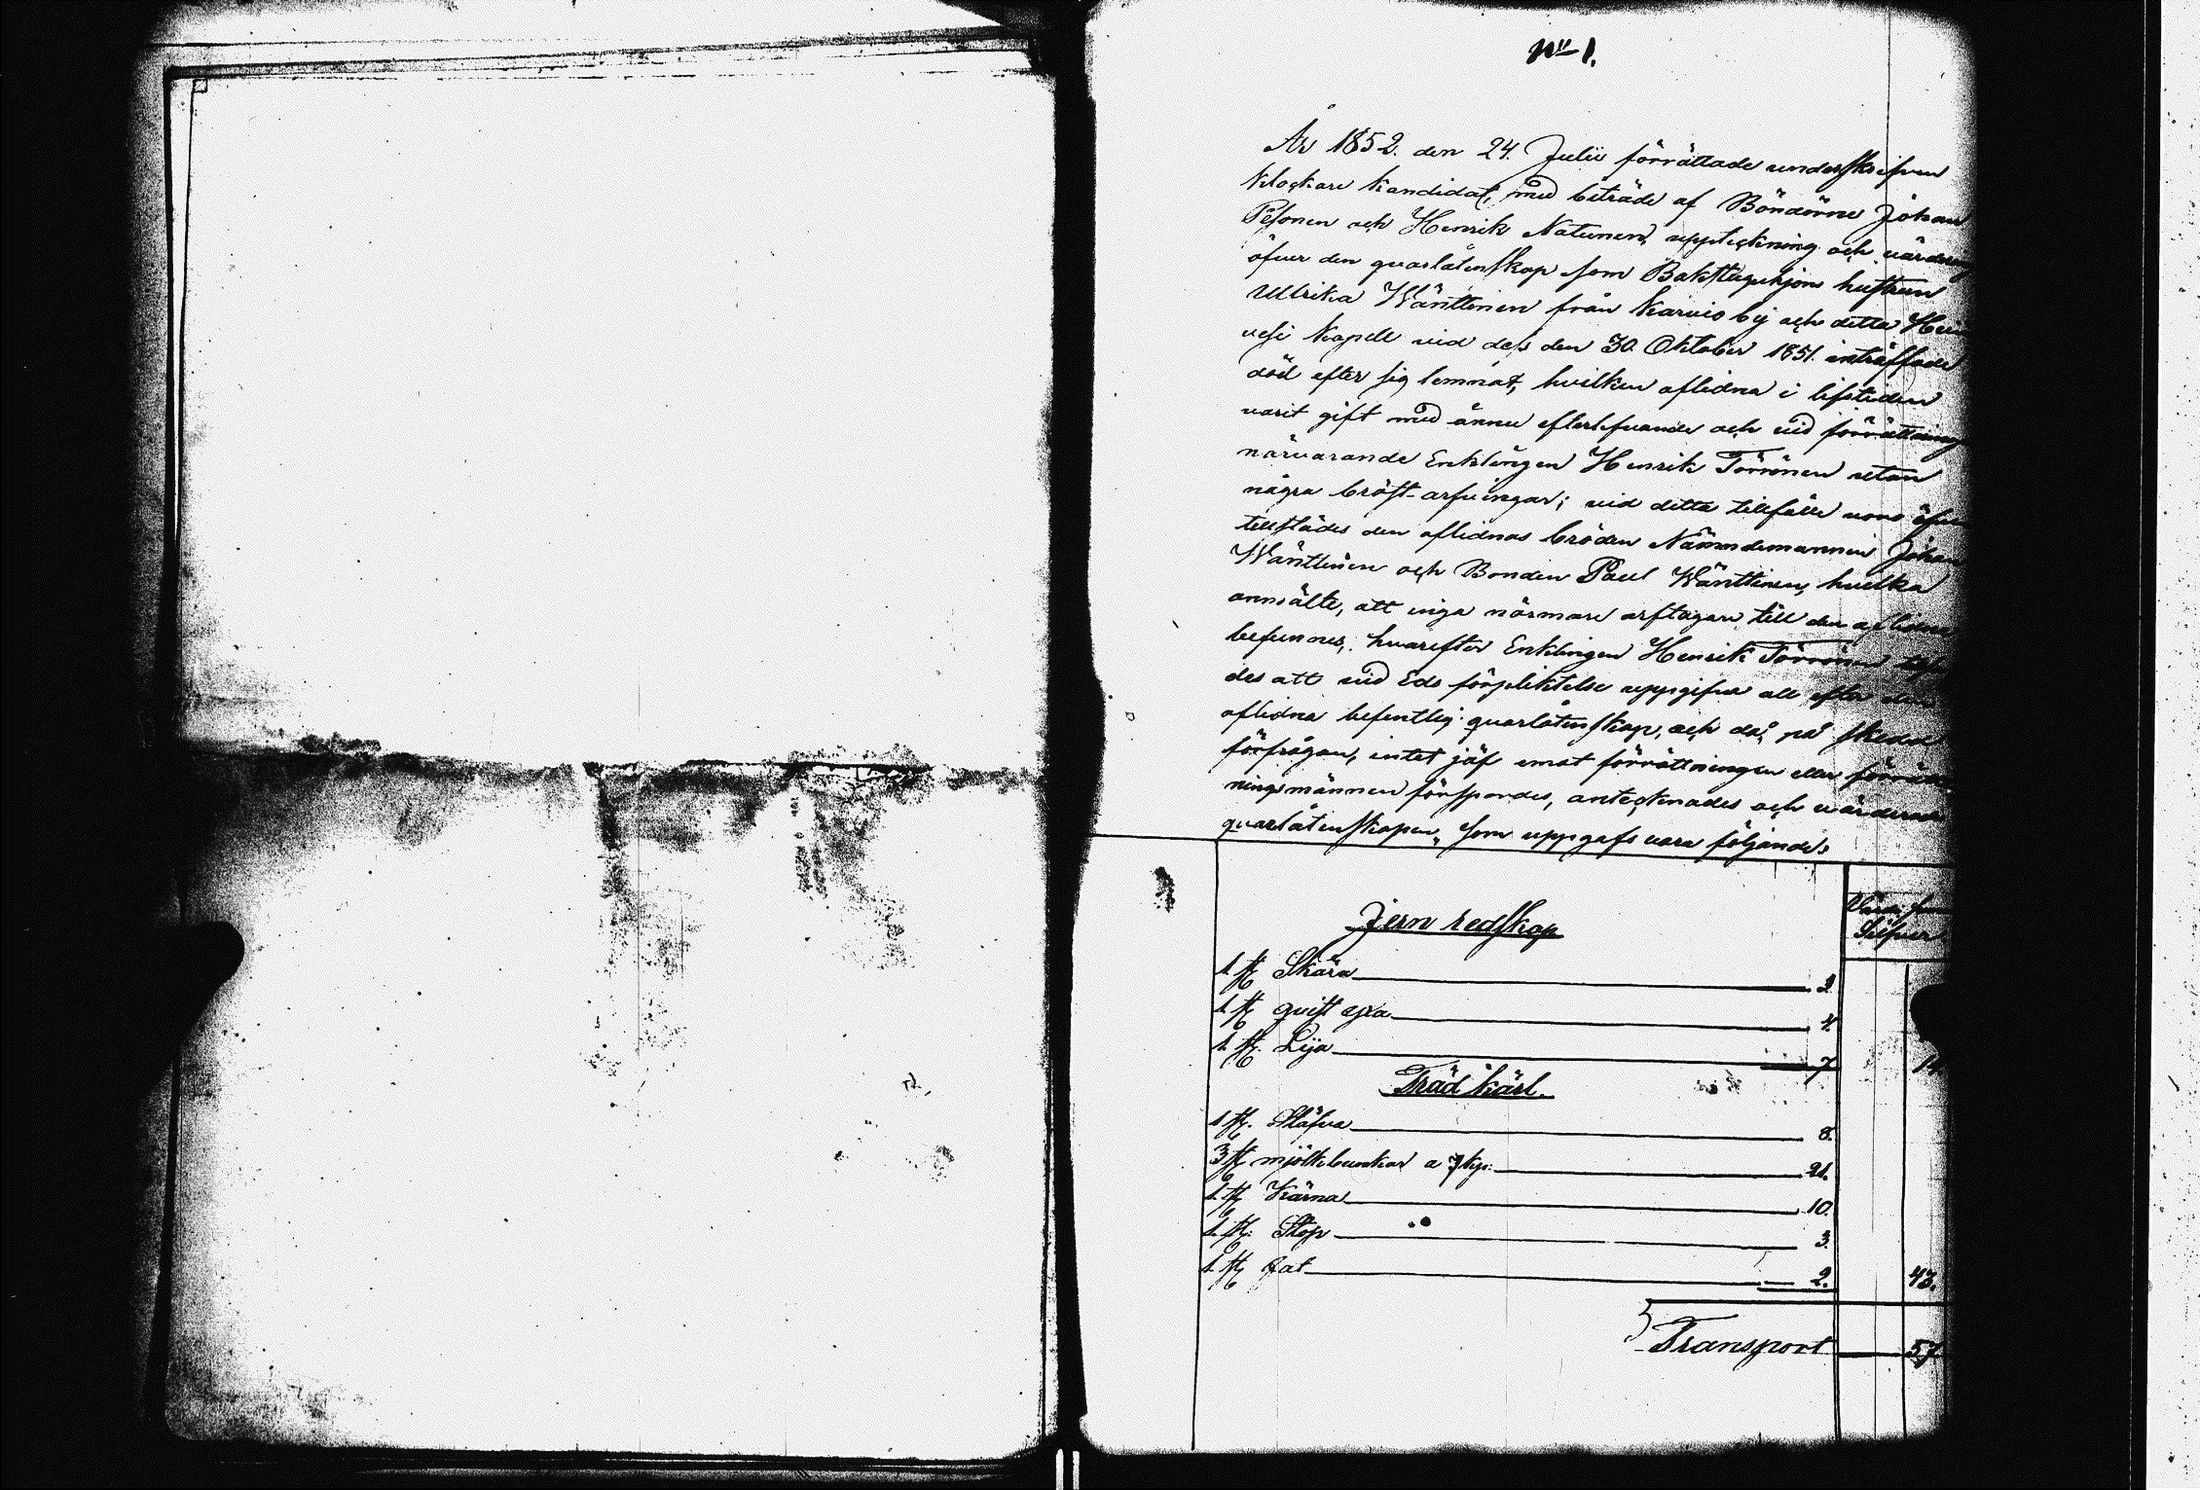 No 1.
År 1852. den 24. Julii förrättade underskrifven
Klockare kandidat, med biträde af Bönderne Johan
Pesonen och Henrik Natunen, uppteckning och värdering
öfver den qvarlåtenskap som Backstuguhjons hustrun
Ulrika Wänttinen från Karvio by och detta Hein
vesi Kapell vid dess den 30 Oktober 1851. inträffade
död efter sig lemnat, hvilken aflidna i lifstiden
varit gift med ännu efterlefvande och vid förrättning
närvarande Enklingen Henrik Törrönen utan
några bröst-arfvingar; vid detta tillfälle voro äfven
tillstädes den aflidnas bröder Nämndemannen Johan
Wänttinen och Bonden Paul Wänttinen, hvilka
anmälte, att inga närmare arftagare till den aflidna
befunnos, hvarefter Enklingen Henrik Törrönen
des att vid Eds förpliktelse uppgifva all efter den
aflidna befintlig qvarlåtenskap, och då, på skedd
förfrågan, intet jäf emot förrättningen eller förrätt
ningsmännen förspordes, antecknades och värderades
qvarlåtenskapen, som uppgafs vara följande:
Silfver
Jern redskap
1. st Skära 3.
1 st qvist yxa 4.
1. st. Lija 7 14
Träd kärl.
1 st. Stäfva 8.
3 st mjölkbunkar a 7 kp. 21.
1. st Kärna 10.
1. st. Stop 3.
1. st fat 2. 43.
Transport 57